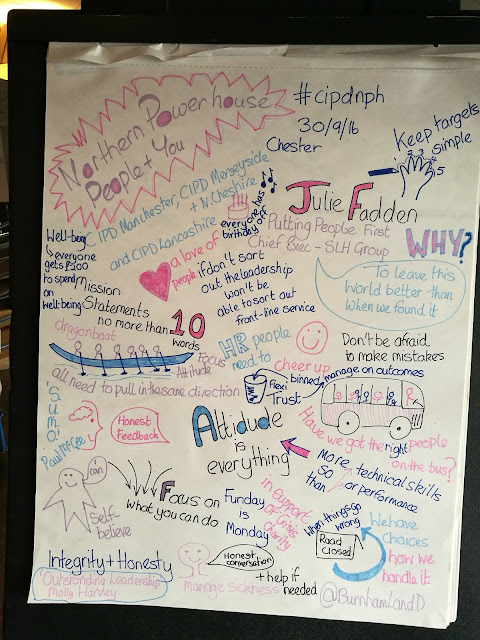 Northern Powerhouse
People + You
#cipdnph
30/9/16
Chester
Keep targets
simple
1 2 3 4 5
CIPD Manchester, CIPD Merseyside
+ N. Cheshire
and CIPD Lancashire
everyone has
birthday off
Julie Fadden
Putting People First
Chief Exec - SLH Group
WHY?
To leave this
World better than
when we found it
Well-being
everyone
gets £500
to spend
on
well-being
a love of
people
if don't sort
out the leadership
won't be
able to sort out
front-line service
Mission
Statements
no more than 10
words
dragonboat
Focus
Attitude
all need to pull in the same direction
HR people
need to
cheer up
Don't be afraid
to make mistakes
Flexi
binned
manage on outcomes
Trust
Have we got the right people
on the bus?
'Sumo'
Paul McGee
Honest
Feedback
Attidude
is
everything
More technical skills
SO or performance
than
I can
Self-
believe
Focus on
what you can do
Funday
is
Monday
in support
of crisis
charity
When things go
wrong
Road
Closed
We have
choices
how we
handle it
Integrity + Honesty
'Outstanding Leadership
Molly Harvey
Honest
conversation
Manage sickness
+ help if
needed
@BurnhamLandD